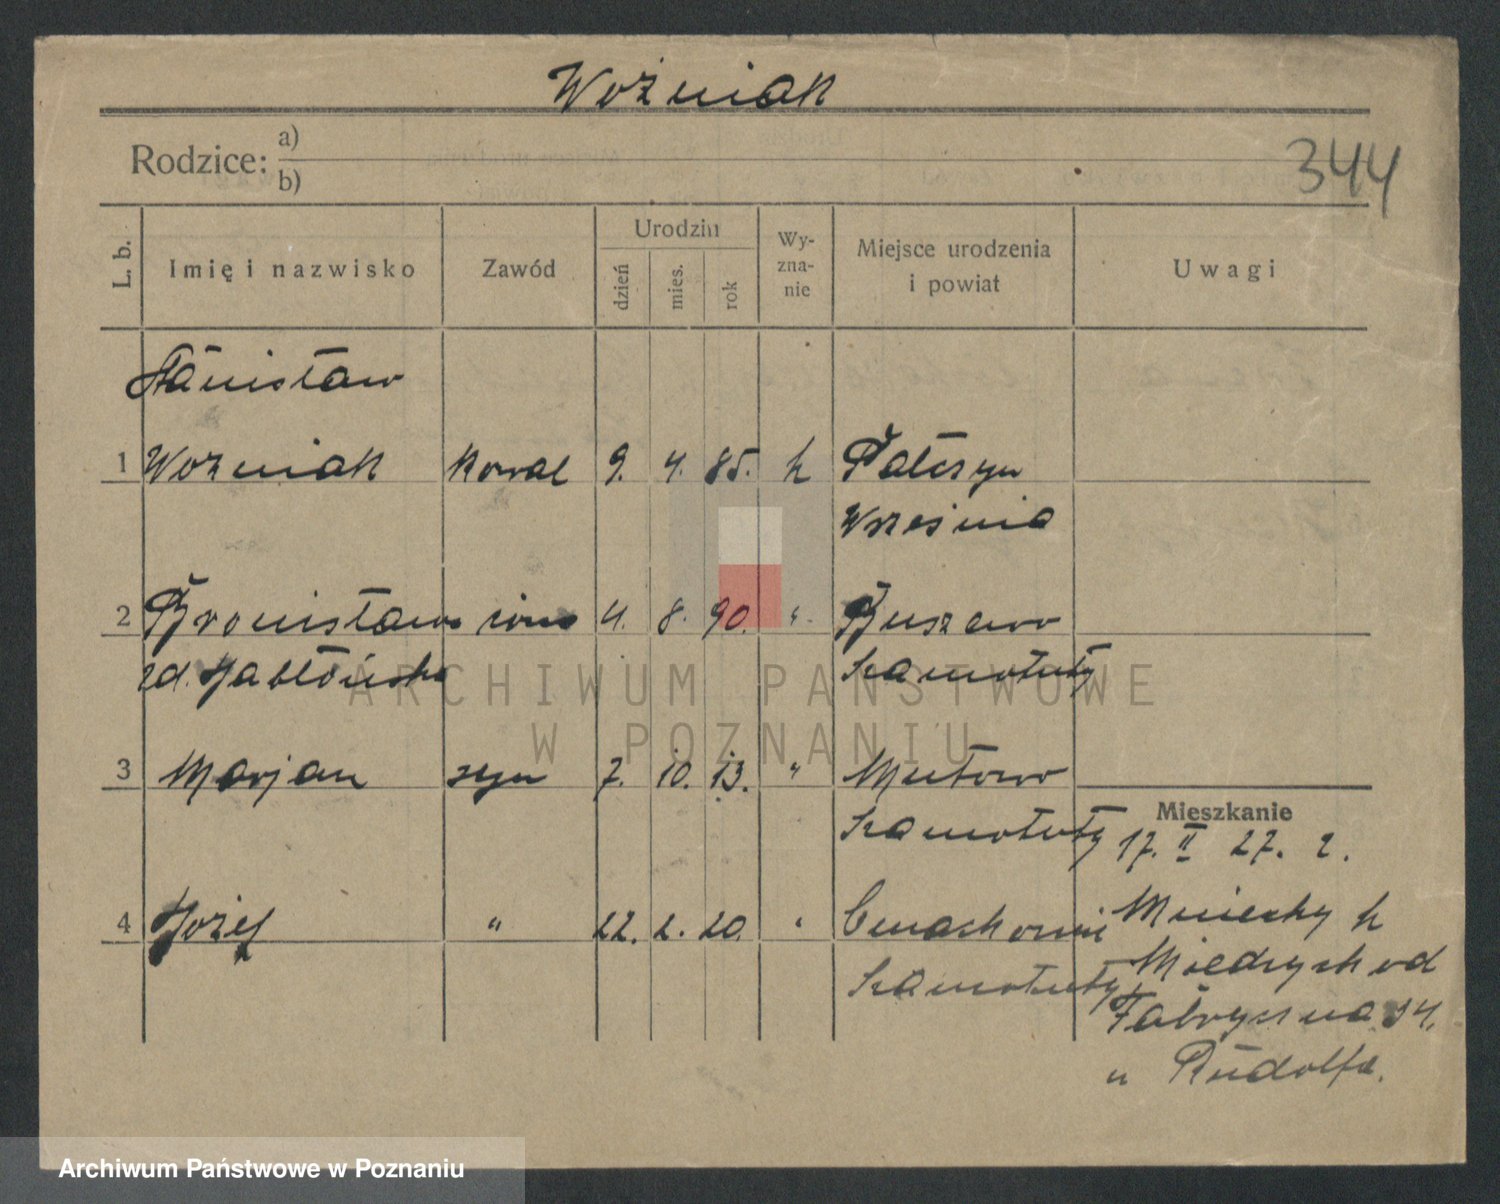 Woźniak
Rodzice: a)
b)
344
L. b. Imię i nazwisko Zawód Urodzin dzień mies. rok Wy-zna-nie Miejsce urodzenia i powiat Uwagi
Stanisław
1 Woźniak kowal 9. 4. 85. k Pałczyn
Września
2 Bronisława żona 4. 8. 90. " Buszewo
zd. Jabłońska Szamotuły
3 Marjan syn 7. 10. 13. " Mutowo
Szamotuły
Mieszkanie
17. II 27. z.
4 Józef " 22. 2. 20. "
Mniechy k
Szamotuły
Międzychod
Fabryczna 34.
u Rudolfa.
ARCHIWUM PAŃSTWOWE
W POZNANIU
Archiwum Państwowe w Poznaniu